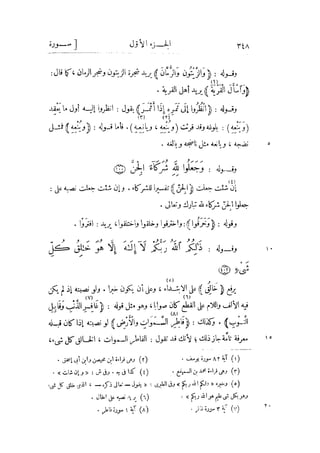 ٣٤٨ الجزء الأول [ صورة
وقوله : ﴿ وَالزَّيْتُونَ وَالرُّمَّانَ ﴾ يريد شجرة الزيتون وشجر الرمان ، كما قال :
﴿ وَاسْأَلِ الْقَرْيَةَ ﴾ يريد أهل القرية .
وقوله : ﴿ انْظُرُوا إِلَى ثَمَرِهِ إِذَا أَثْمَرَ ﴾ يقول : انظروا إليه أول ما يعقد
( وينعه ) : بلوغه وقد قرئت ( وَيُنْعه ، ويانعه ) . فأما قوله : ﴿ وينعه ﴾ فمثل
٥ نضجه ، ويانعه مثل ناضجه وبالغه .
وقوله : وَجَعَلُوا لِلَّهِ شُرَكَاءَ الْجِنَّ ١٠٠
إن شئت جعلت ﴿ الجن ﴾ تفسيرا للشركاء . وإن شئت جعلت نصبه على :
جعلوا الجن شركاء لله تبارك وتعالى .
وقوله : ﴿ وَخَرَقُوا ﴾ : واخترقوا وخلقوا واختلقوا ، يريد : افتروا .
١٠ وقوله : ذَٰلِكُمُ اللَّهُ رَبُّكُمْ لَا إِلَٰهَ إِلَّا هُوَ خَالِقُ كُلِّ
شَيْءٍ ١٠٢
يرفع ﴿ خالق ﴾ على الابتداء ، وعلى أن يكون خبرا . ولو نصبته إذ لم يكن
فيه الألف واللام على القطع كان صوابا ، وهو مثل قوله : ﴿ غَافِرِ الذَّنْبِ وَقَابِلِ
التَّوْبِ ﴾ . وكذلك : ﴿ فَاطِرِ السَّمَوَاتِ وَالْأَرْضِ ﴾ لو نصبته إذا كان قبله
١٥ معرفة تامّة جاز ذلك ؛ لأنك قد تقول : الفاطر السموات ، الخالق كل شيء ،
(١) آية ٨٢ سورة يوسف . (٢) وهى قراءة ابن محيصن وابن أبى إسحق .
(٣) وهى قراءة محمد بن السميفع . (٤) كذا فى ج . وفى ش : « وإن شاءت » .
(٦) يريد نصبه على الحال .
(٧) آية ٣ سورة غافر . (٨) آية ١ سورة فاطر .
٢٠